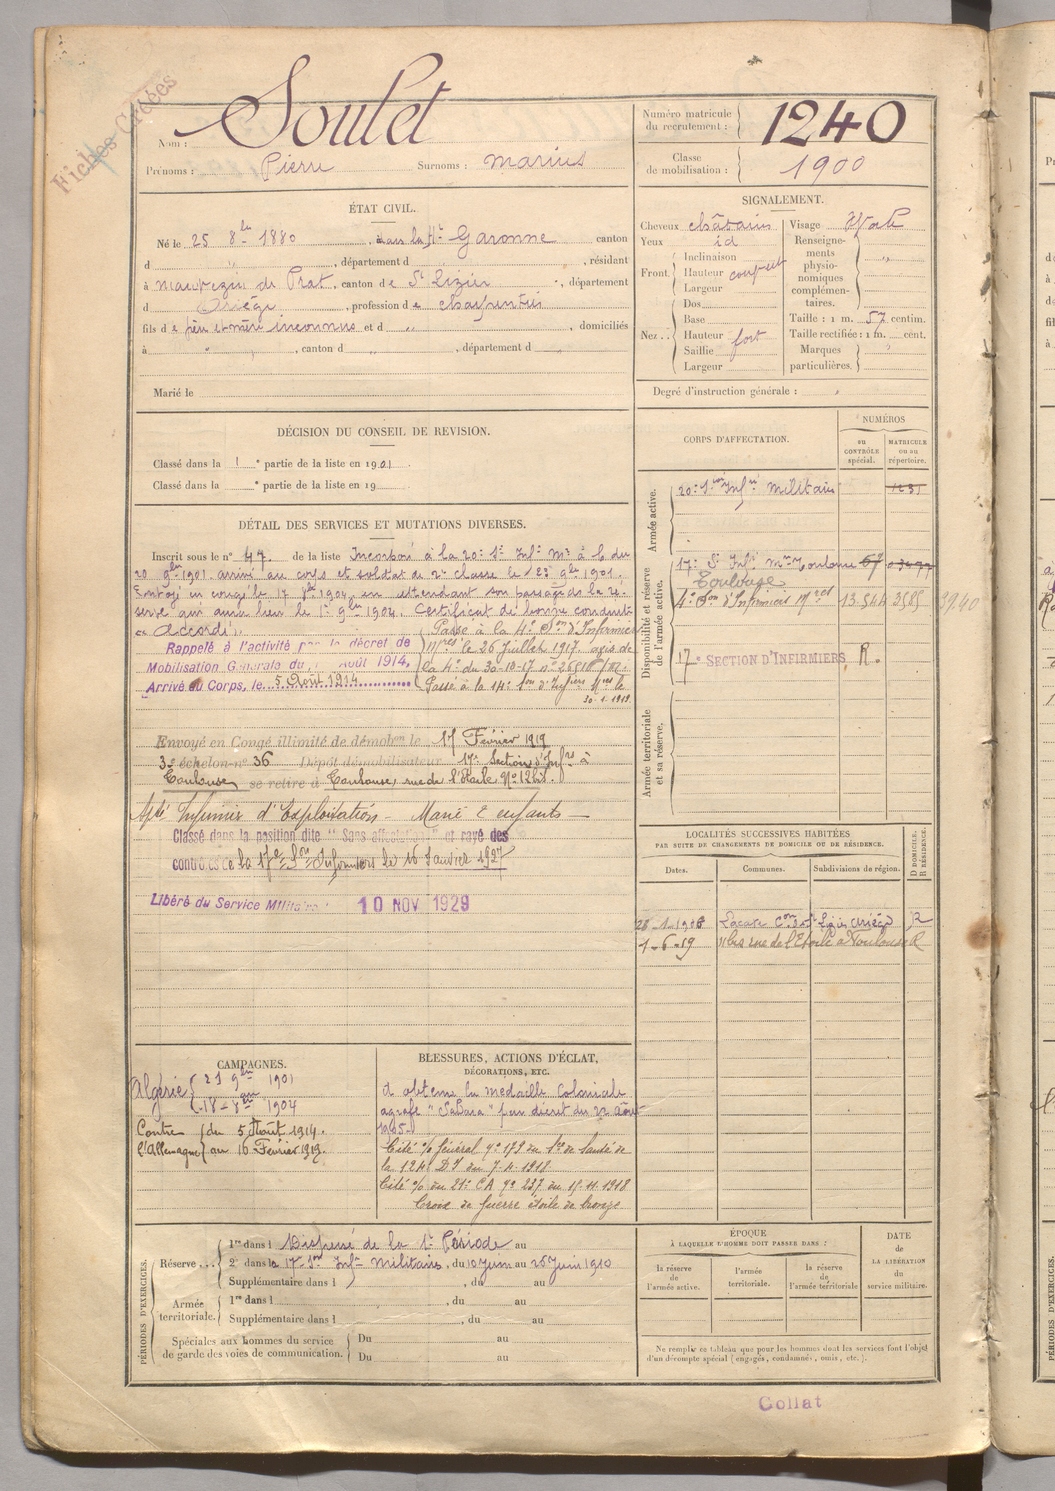 Fiches Créées
Nom : Soulet
Prénoms : Pierre Surnoms : Marius
Numéro matricule du recrutement : 1240
Classe de mobilisation : 1900
ÉTAT CIVIL.
Né le 25 8bre 1880, dans la Hte Garonne canton
d , département d , résidant
à Mauvezin de Prat, canton de St Lizier , département
d Ariège , profession de charpentier
fils de père et mère inconnus et d , domiciliés
à , canton d , département d
Marié le
SIGNALEMENT.
Cheveux châtains
Yeux id
Front Inclinaison
Hauteur
Largeur
Nez.. Dos
Base
Hauteur fort
Saillie
Largeur
Visage Ovale
Renseignements physionomiques complémentaires.
Taille : 1 m. 57 centim.
Taille rectifiée : 1 m. cent.
Marques particulières.
Degré d'instruction générale :
DÉCISION DU CONSEIL DE REVISION.
Classé dans la 1e partie de la liste en 1901.
Classé dans la e partie de la liste en 19
CORPS D'AFFECTATION.
NUMÉROS
au CONTRÔLE spécial.
MATRICULE ou au répertoire.
Armée active.
20e Son Infrs militaires 1231
Disponibilité et réserve de l'armée active.
17e Son Infrs Mres Toulouse 67
Toulouse
4e Son d'Infirmiers Mres 13.544 3585 3940
17e SECTION D'INFIRMIERS, R.
Armée territoriale et sa réserve.
DÉTAIL DES SERVICES ET MUTATIONS DIVERSES.
Inscrit sous le n° 47. de la liste Incorporé à la 20e Son Infrs Mres à c. du
20 9bre 1901 arrivé au corps et soldat de 2e classe le 23 9bre 1901.
Envoyé en congé le 17 8bre 1904, en attendant son passage dans la ré-
serve qui aura lieu le 1er 9bre 1904. Certificat de bonne conduite
"Accordé".
Rappelé à l'activité par le décret de
Mobilisation Générale du 1er Août 1914,
Arrivé au Corps, le 5 Août 1914
Passé à la 4e Son d'Infirmiers
Mres le 26 juillet 1917, avis de
la 4e du 30-10-17 n° 26811/M.
Passé à la 17e Son d'Infiers Mres le
30.1.1919
Envoyé en Congé illimité de démobon le 17 Février 1919
3e échelon n° 36 Dépôt démobilisateur 17e Section d'Infres à
Toulouse se retire à Toulouse, rue de l'Etoile N° 12bis.
Apte Infirmier d'Exploitation - Marié 2 enfants
Classé dans la position dite "Sans affectation" et rayé des
contrôles de la 17e Son Infirmiers le 16 Janvier 1927
Libéré du Service Militaire : 10 NOV 1929
LOCALITÉS SUCCESSIVES HABITÉES
PAR SUITE DE CHANGEMENTS DE DOMICILE OU DE RÉSIDENCE.
Dates. Communes. Subdivisions de région. D DOMICILE. R RÉSIDENCE.
28-1-1908 Lacave Con de St Lizier Ariège R
1-6-19 rue de l'Etoile à Toulouse R
CAMPAGNES.
Algérie 21 9bre 1901
18 8bre 1904
Contre l'Allemagne du 5 Août 1914.
au 16 Février 1919.
BLESSURES, ACTIONS D'ÉCLAT,
DÉCORATIONS, ETC.
A obtenu la médaille Coloniale
agrafe "Sahara" par décret du 22 Août
1905.
Cité % Général n° 179 du Sce de Santé de
la 124e DI du 7-4-1918
Cité % du 21e CA n° 237 du 15-11-1918
Croix de guerre étoile de bronze
PÉRIODES D'EXERCICES.
Réserve...
1re dans l Dispensé de la 1re Période au
2e dans la 17e Son Infrs militaires, du 10 Juin au 26 Juin 1910
Supplémentaire dans l , du au
Armée territoriale.
1re dans l , du au
Supplémentaire dans l , du au
Spéciales aux hommes du service
de garde des voies de communication.
Du au
Du au
ÉPOQUE
À LAQUELLE L'HOMME DOIT PASSER DANS :
la réserve de l'armée active.
l'armée territoriale.
la réserve de l'armée territoriale
DATE de LA LIBÉRATION du service militaire.
Ne remplir ce tableau que pour les hommes dont les services font l'objet
d'un décompte spécial (engagés, condamnés, omis, etc.).
Collat